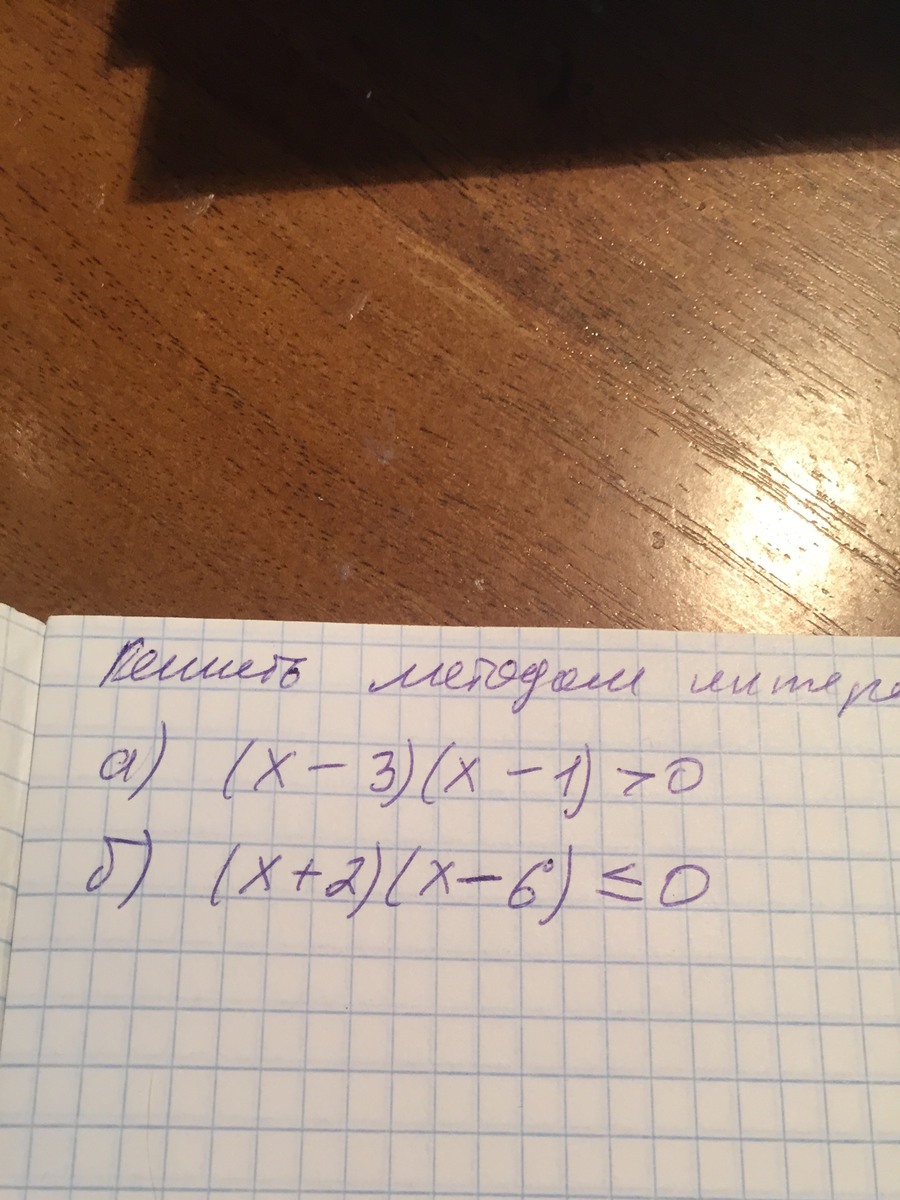 Решить методом интерв
а) (x - 3)(x - 1) > 0
б) (x + 2)(x - 6) ≤ 0